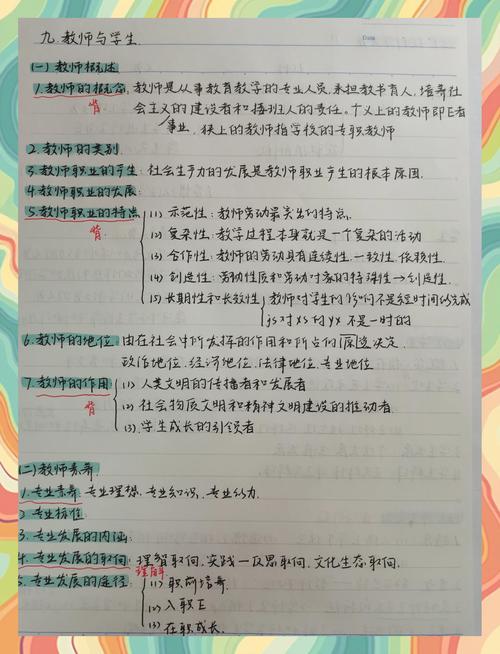 Date
九.教师与学生
(一)教师概述
1.教师的概念:教师是从事教育教学的专业人员,承担教书育人,培养社
背 会主义的建设者和接班人的责任。广义上的教师即E者
事业,狭上的教师指学校的专职教师
2.教师的类别.
3.教师职业的产生:社会生产力的发展是教师职业产生的根本原因.
4.教师职业的发展:
5.教师职业的特点 (1) 示范性:教师劳动最突出的特点.
背 (2) 复杂性:教学过程本身就是一个复杂的活动
(3) 合作性:教师的劳动具有连续性.一致性.依赖性.
(4) 创造性:劳动性质和劳动对象的特殊性→创造性.
(5) 长期性和长效性 教师对学生的影响不是短时间能完成
js对xs的yx不是一时的
6.教师的地位:由在社会中所发挥的作用和所占的决定.
政治地位.经济地位.法律地位.专业地位
7.教师的作用 (1) 人类文明的传播者和发展者
背 (2) 社会物质文明和精神文明建设的推动者.
(3) 学生成长的引领者
(二)教师素养.
1.专业素养:专业理想.专业知识.专业能力.
2.专业标准:
3.专业发展的内涵:
4.专业发展的取向:理智取向.实践—反思取向.文化生态取向.
理解
5.专业发展的途径 (1) 职前培养.
(2) 入职E
(3) 在职成长.